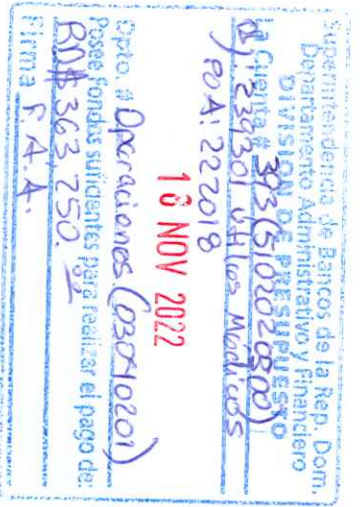 Superintendencia de Bancos de la Rep. Dom.
Departamento Administrativo y Financiero
DIVISION DE PRESUPUESTO
La Cuenta # 303 (5102020500)
a): 239301 Utiles Medicos
POA: 222018
16 NOV 2022
Dpto. # Operaciones (03040201)
Posse fondos suficientes para realizar el pago de:
RD$ 363,750.00
Firma F.A.A.